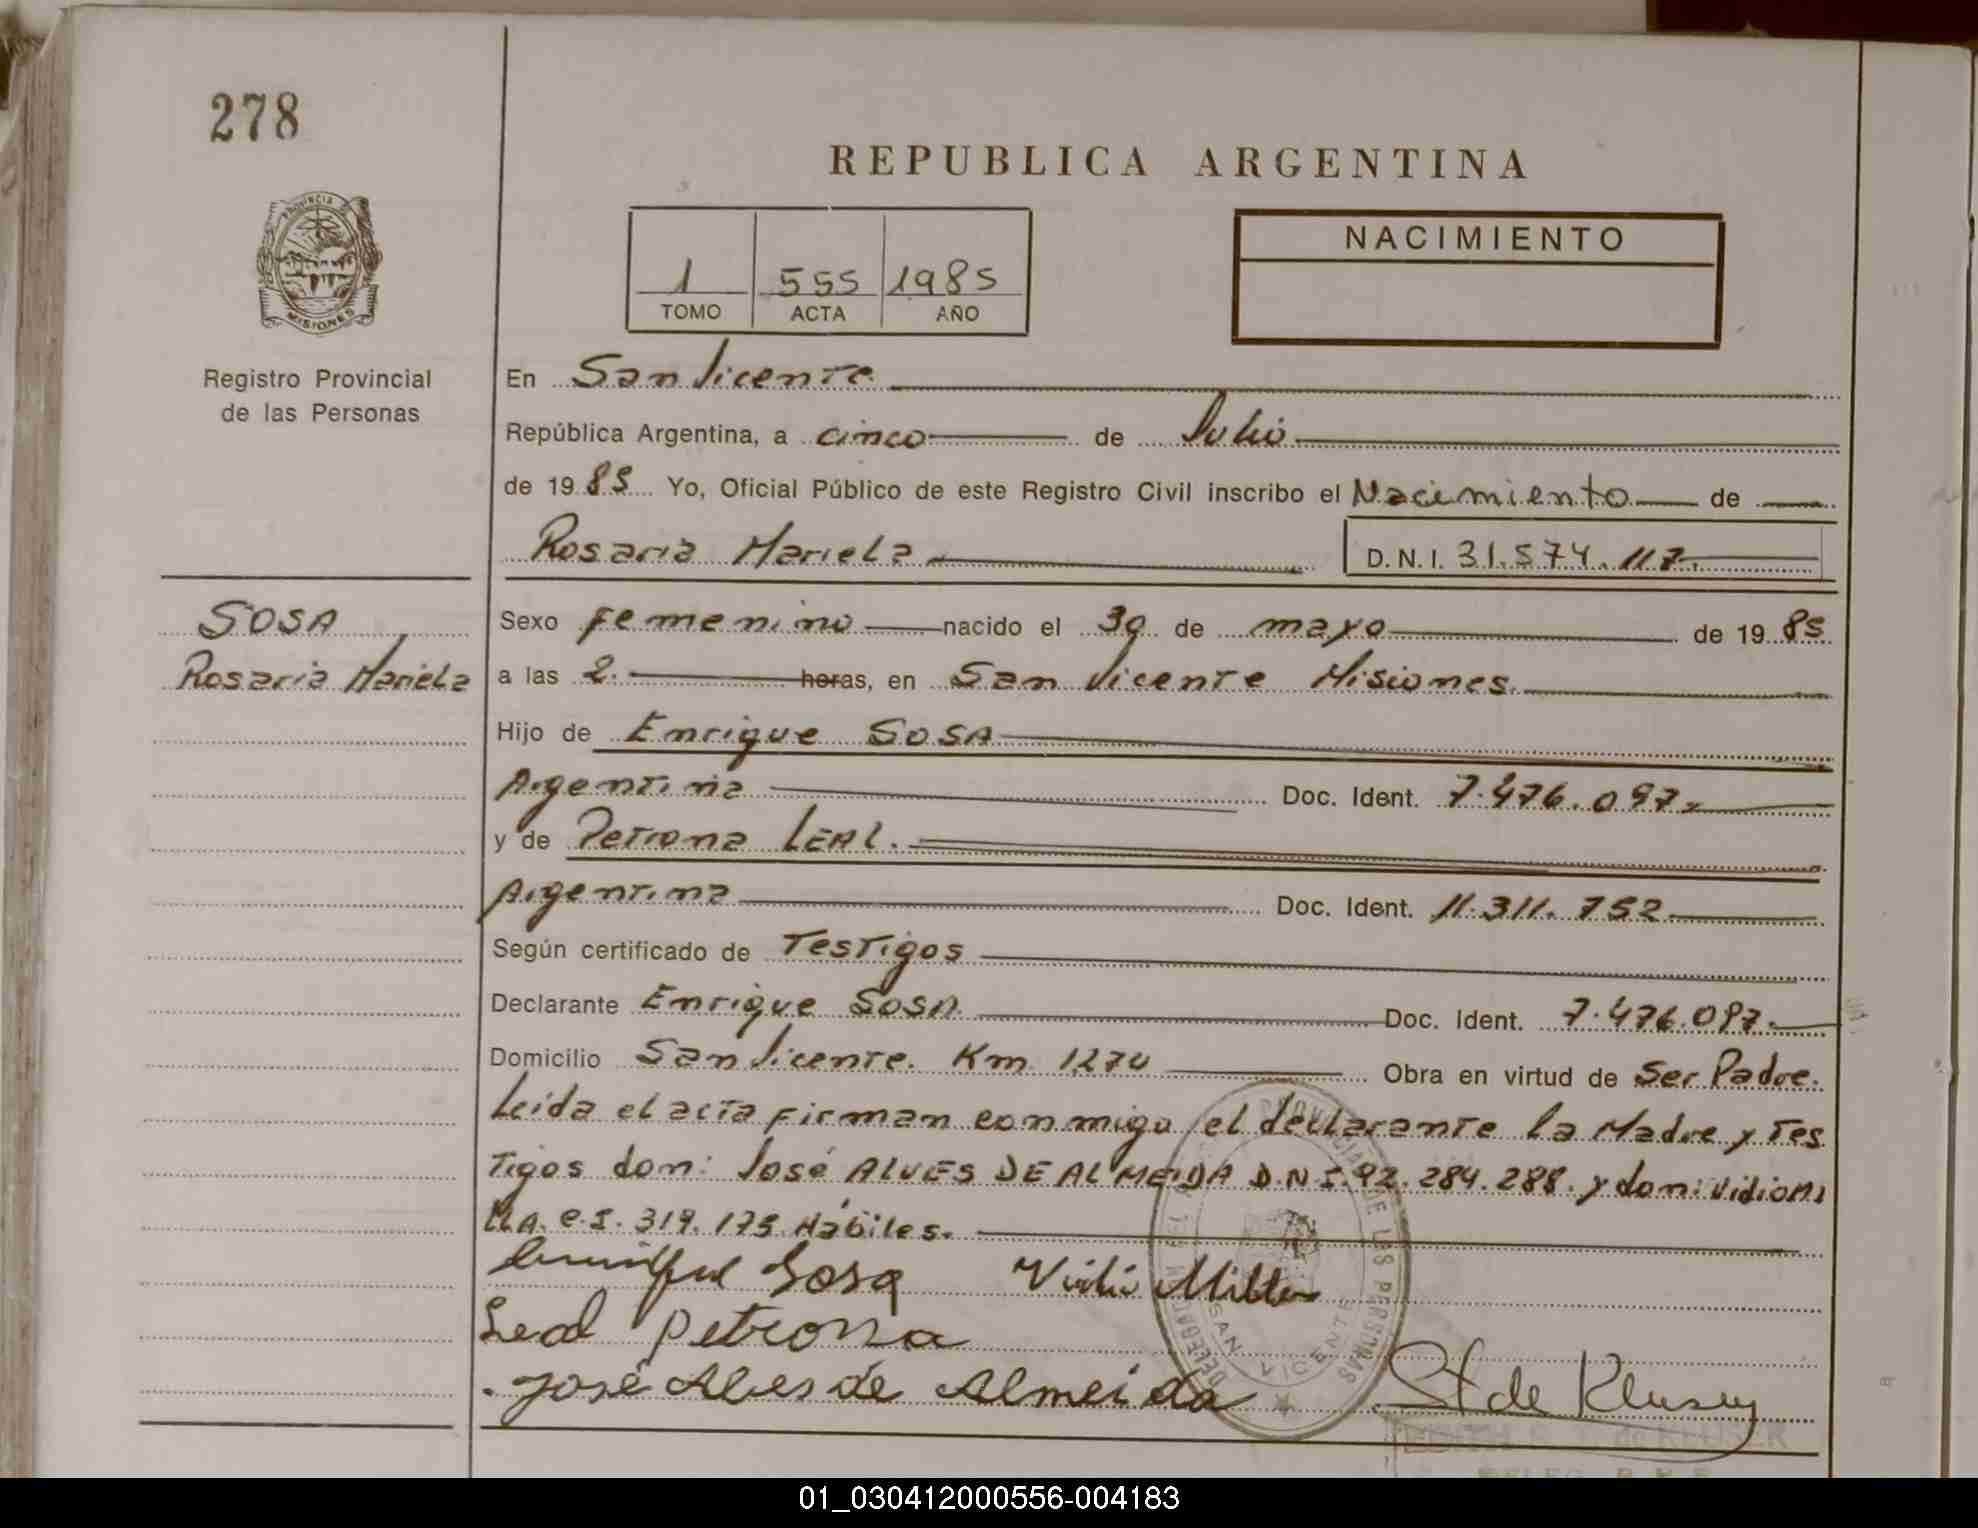 278
REPUBLICA ARGENTINA
PROVINCIA D
MISIONES
Registro Provincial
de las Personas
1 555 1985
TOMO ACTA AÑO
NACIMIENTO
En San Vicente
República Argentina, a cinco de Julio
de 1985 Yo, Oficial Público de este Registro Civil inscribo el Nacimiento de
Rosaria Mariela D.N.I. 31.574.117.
SOSA
Rosaria Mariela
Sexo Femenino nacido el 30 de mayo de 1985
a las 2. horas, en San Vicente Misiones.
Hijo de Enrique SOSA
Argentina Doc. Ident. 7.476.097.
y de Petrona LEAL.
Argentina Doc. Ident. 11.311.752
Según certificado de Testigos
Declarante Enrique SOSA Doc. Ident. 7.476.097.
Domicilio San Vicente. Km 1270 Obra en virtud de Ser Padre.
Leida el acta firman conmigo el declarante la Madre y Tes
Tigos don: José ALVES DE ALMEIDA D.N.I. 92.284.288. y don:
319.175 Hábiles.
Sosa
Leal Petrona
José Alves de Almeida
St de Kluser
DE LAS PERSONAS
SAN VICENTE
de KLUSER
01_030412000556-004183